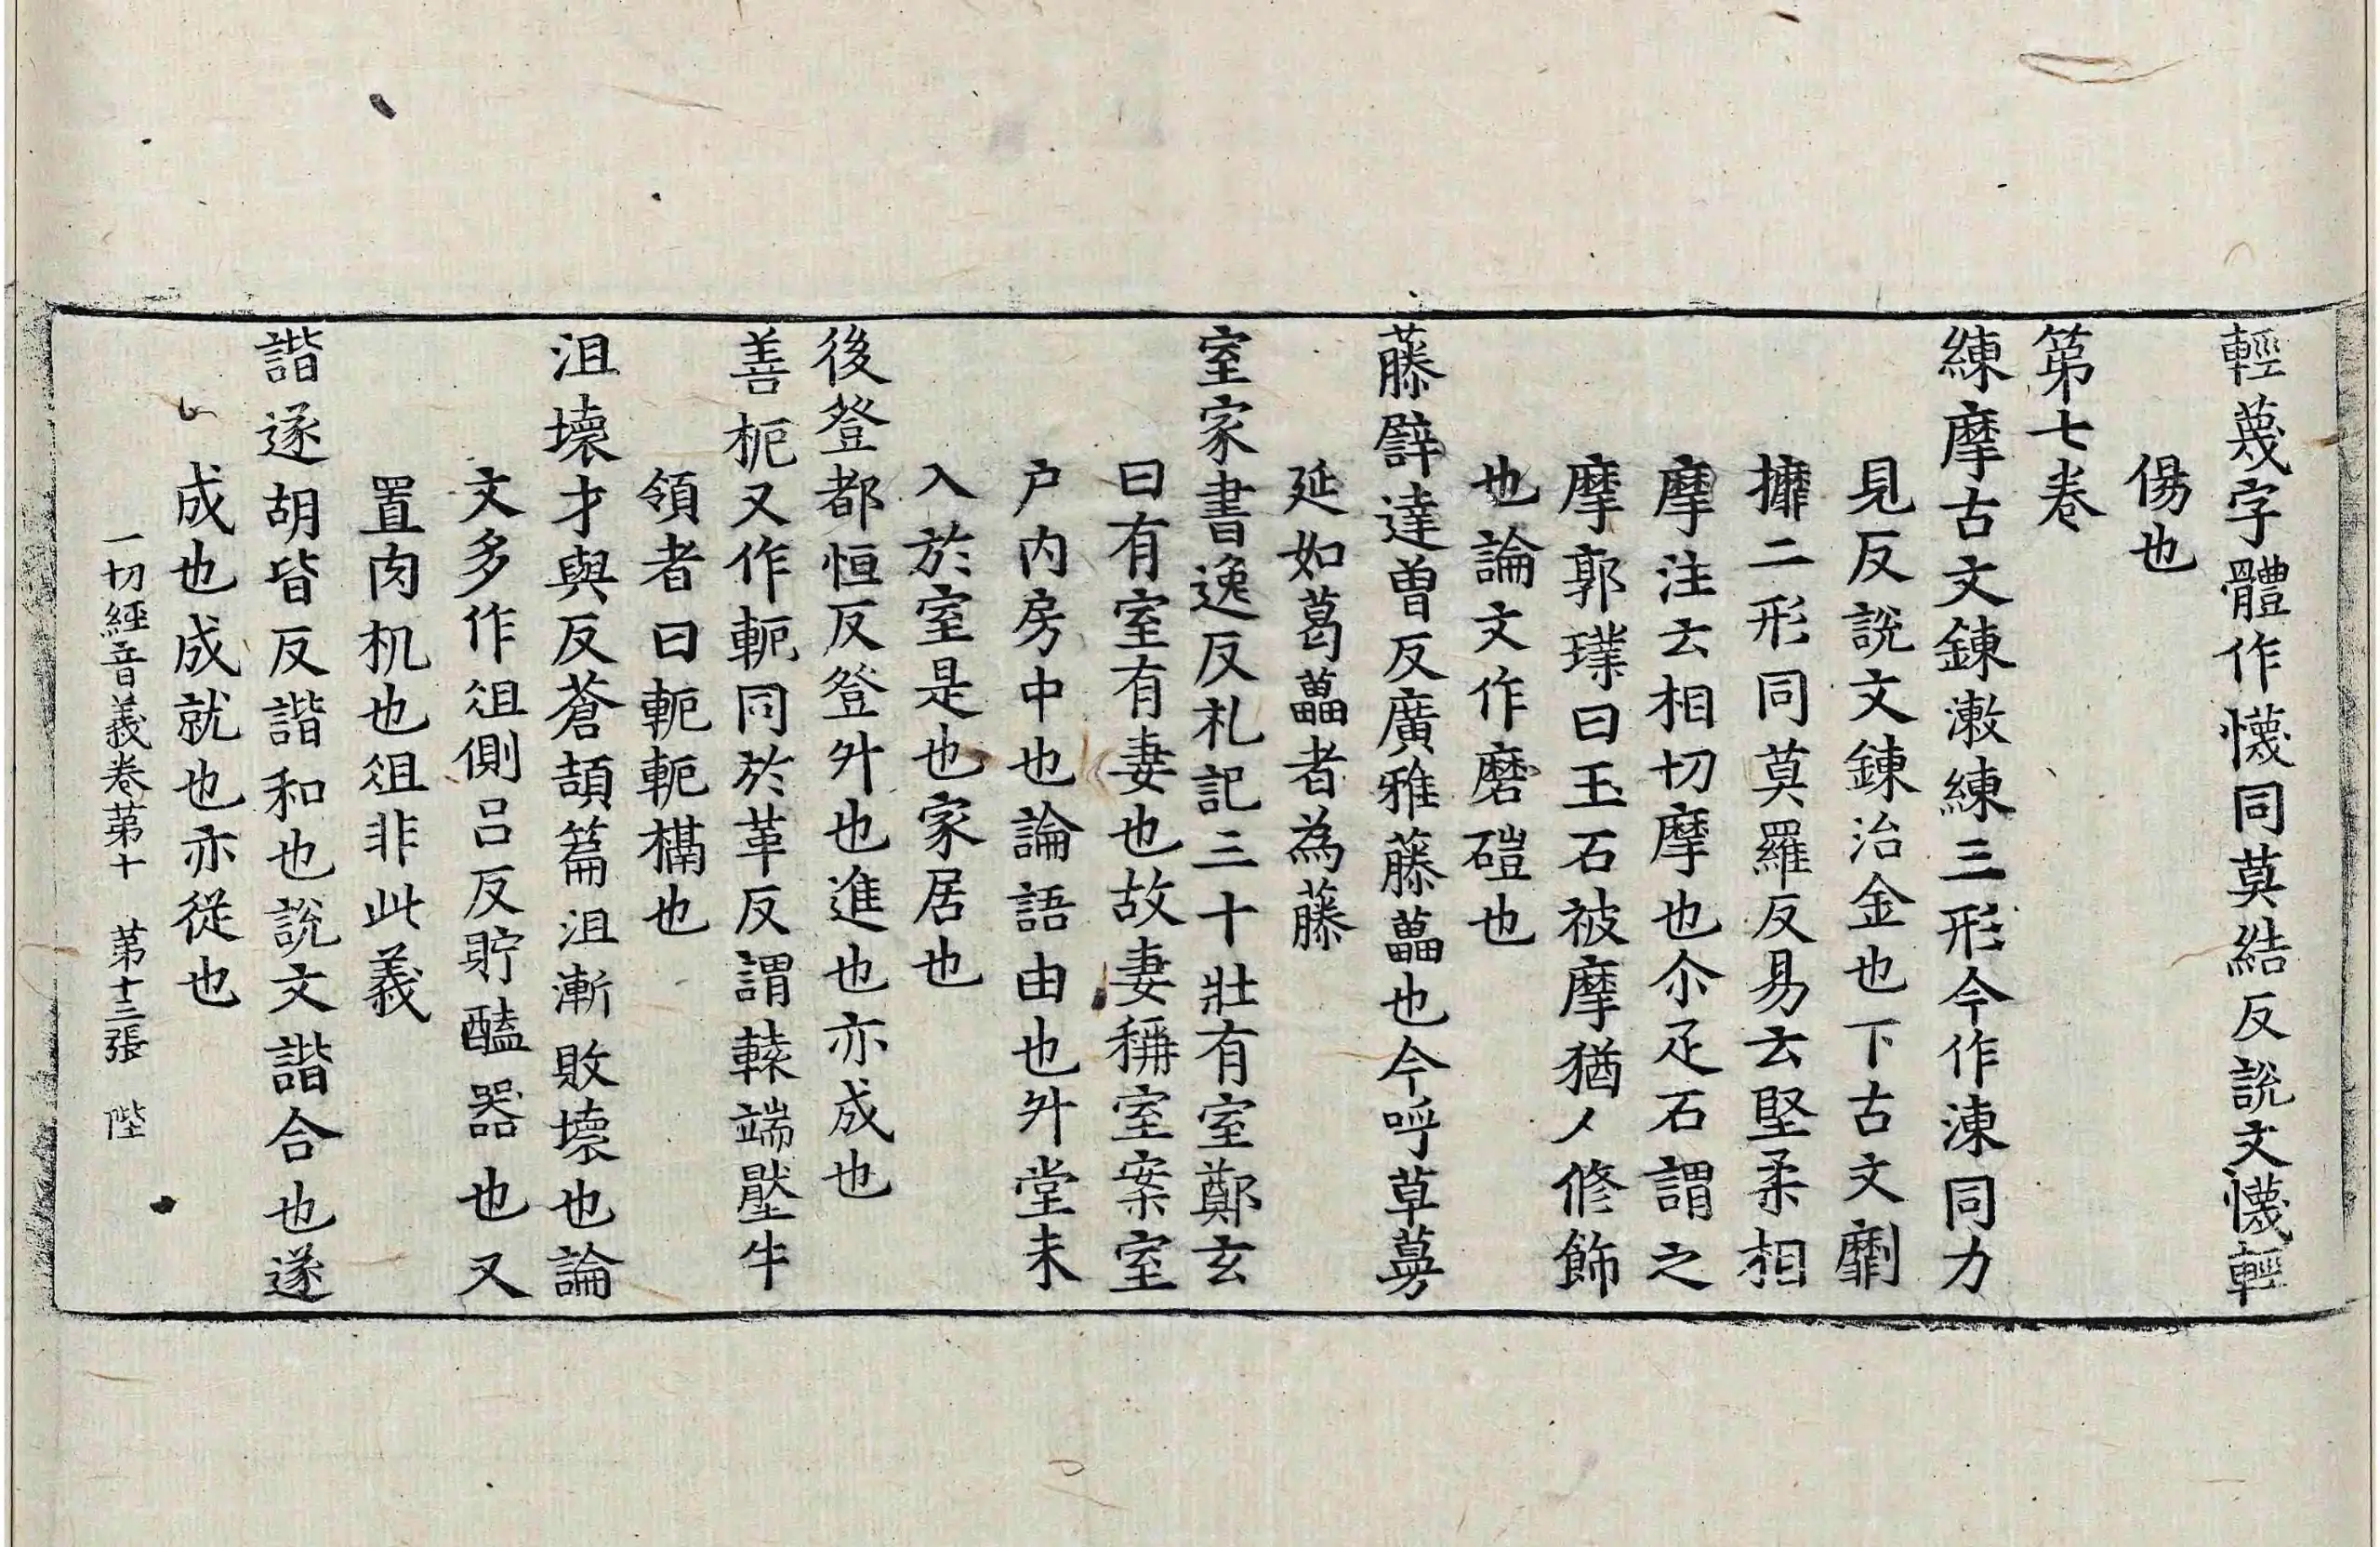 輕蔑字體作懱同莫結反說文懱輕
傷也
第七卷
練摩古文鍊漱練三形今作湅同力
見反說文鍊治金也下古文劘
攠二形同莫羅反易云堅柔相
摩注云相切摩也尒疋石謂之
摩郭璞曰玉石被摩猶人修飾
也論文作磨磑也
藤辟達曾反廣雅藤藟也今呼草蔓
延如葛藟者為藤
室家書逸反札記三十壯有室鄭玄
曰有室有妻也故妻稱室案室
户内房中也論語由也升堂未
入於室是也家居也
後登都恒反登升也進也亦成也
善枙又作軛同於革反謂轅端壓牛
領者曰軛軛槅也
沮壞才與反蒼頡篇沮漸敗壞也論
文多作俎側呂反貯醢器也又
置肉机也俎非此義
諧遂胡皆反諧和也說文諧合也遂
成也成就也亦從也
一切經音義卷第十 第十三張 陛